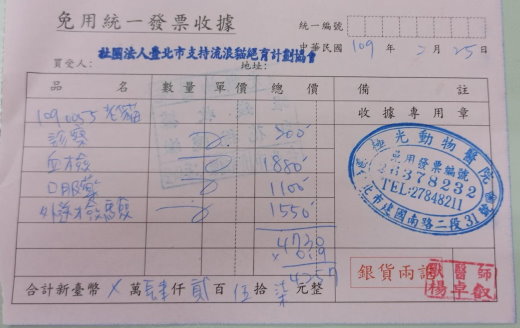 免用統一發票收據
統一編號
中華民國 109 年 2 月 25 日
社團法人臺北市支持流浪貓絕育計劃協會
買受人: 地址:
品名 數量 單價 總價 備註
1091055 老貓
診察 300
血檢 1880
口服藥 1100
1550
4730
× 0.9
4257
收據專用章
極光動物醫院
免用發票編號
26378232
TEL:27848211
北市建國南路二段31號
銀貨兩訖
獸醫師
楊卓叡
合計新臺幣 X 萬 肆 仟 貳 百 伍 拾 柒 元整